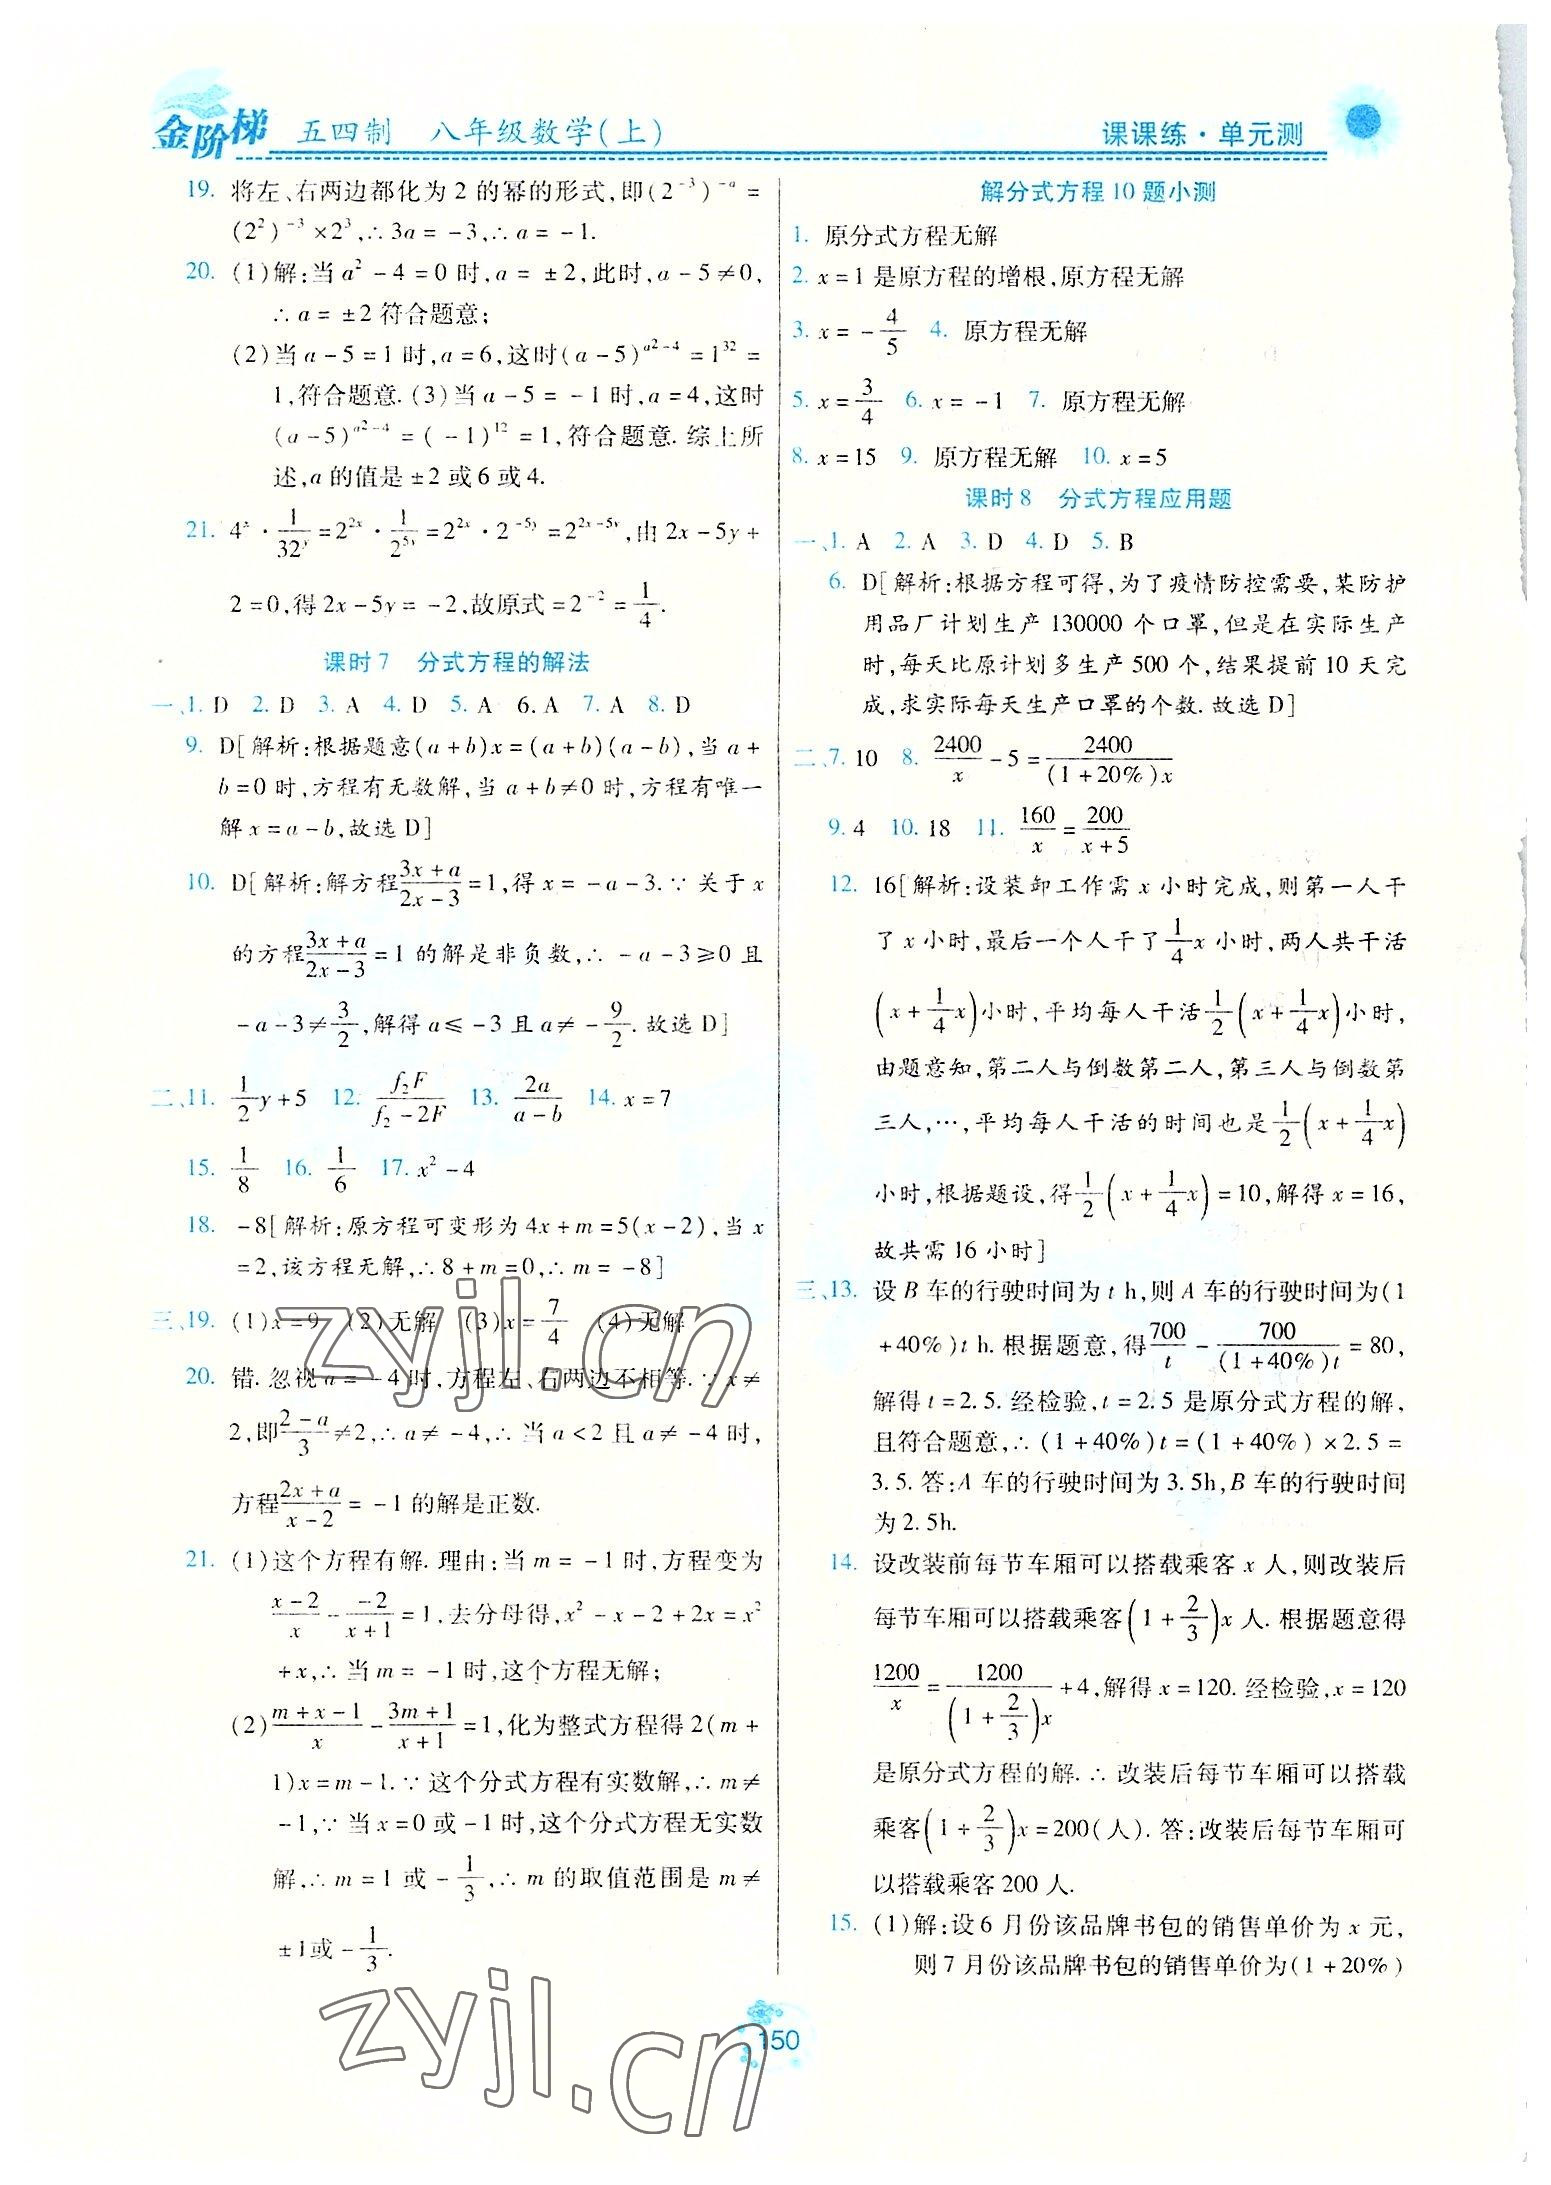 金阶梯 五四制 八年级数学(上) 课课练·单元测
19. 将左、右两边都化为 2 的幂的形式,即(2⁻³)⁻ᵃ=
(2²)⁻³×2³,∴3a=-3,∴a=-1.
20. (1)解:当 a²-4=0 时,a=±2,此时,a-5≠0,
∴a=±2 符合题意;
(2)当 a-5=1 时,a=6,这时(a-5)^(a²-4)=1³²=
1,符合题意. (3)当 a-5=-1 时,a=4,这时
(a-5)^(a²-4)=(-1)¹²=1,符合题意. 综上所
述,a 的值是±2 或 6 或 4.
21. 4ˣ·1/32ʸ=2²ˣ·1/2⁵ʸ=2²ˣ·2⁻⁵ʸ=2²ˣ⁻⁵ʸ,由 2x-5y+
2=0,得 2x-5y=-2,故原式=2⁻²=1/4.
课时 7 分式方程的解法
一、1. D 2. D 3. A 4. D 5. A 6. A 7. A 8. D
9. D[解析:根据题意(a+b)x=(a+b)(a-b),当 a+
b=0 时,方程有无数解,当 a+b≠0 时,方程有唯一
解 x=a-b,故选 D]
10. D[解析:解方程(3x+a)/(2x-3)=1,得 x=-a-3.∵关于 x
的方程(3x+a)/(2x-3)=1 的解是非负数,∴-a-3≥0 且
-a-3≠3/2,解得 a≤-3 且 a≠-9/2. 故选 D]
二、11. 1/2y+5 12. f₂F/(f₂-2F) 13. 2a/(a-b) 14. x=7
15. 1/8 16. 1/6 17. x²-4
18. -8[解析:原方程可变形为 4x+m=5(x-2),当 x
=2,该方程无解,∴8+m=0,∴m=-8]
三、19. (1)x=9 (2)无解 (3)x=7/4 (4)无解
20. 错. 忽视 a=-4 时,方程左、右两边不相等.∵x≠
2,即(2-a)/3≠2,∴a≠-4,∴当 a<2 且 a≠-4 时,
方程(2x+a)/(x-2)=-1 的解是正数.
21. (1)这个方程有解. 理由:当 m=-1 时,方程变为
(x-2)/x-(-2)/(x+1)=1,去分母得,x²-x-2+2x=x²
+x,∴当 m=-1 时,这个方程无解;
(2)(m+x-1)/x-(3m+1)/(x+1)=1,化为整式方程得 2(m+
1)x=m-1.∵这个分式方程有实数解,∴m≠
-1,∵当 x=0 或-1 时,这个分式方程无实数
解,∴m=1 或-1/3,∴m 的取值范围是 m≠
±1 或-1/3.
解分式方程 10 题小测
1. 原分式方程无解
2. x=1 是原方程的增根,原方程无解
3. x=-4/5 4. 原方程无解
5. x=3/4 6. x=-1 7. 原方程无解
8. x=15 9. 原方程无解 10. x=5
课时 8 分式方程应用题
一、1. A 2. A 3. D 4. D 5. B
6. D[解析:根据方程可得,为了疫情防控需要,某防护
用品厂计划生产 130000 个口罩,但是在实际生产
时,每天比原计划多生产 500 个,结果提前 10 天完
成,求实际每天生产口罩的个数. 故选 D]
二、7. 10 8. 2400/x-5=2400/(1+20%)x
9. 4 10. 18 11. 160/x=200/(x+5)
12. 16[解析:设装卸工作需 x 小时完成,则第一人干
了 x 小时,最后一个人干了1/4x 小时,两人共干活
(x+1/4x)小时,平均每人干活1/2(x+1/4x)小时,
由题意知,第二人与倒数第二人、第三人与倒数第
三人,…,平均每人干活的时间也是1/2(x+1/4x)
小时,根据题设,得1/2(x+1/4x)=10,解得 x=16,
故共需 16 小时]
三、13. 设 B 车的行驶时间为 t h,则 A 车的行驶时间为(1
+40%)t h. 根据题意,得700/t-700/(1+40%)t=80,
解得 t=2.5. 经检验,t=2.5 是原分式方程的解,
且符合题意,∴(1+40%)t=(1+40%)×2.5=
3.5. 答:A 车的行驶时间为 3.5h,B 车的行驶时间
为 2.5h.
14. 设改装前每节车厢可以搭载乘客 x 人,则改装后
每节车厢可以搭载乘客(1+2/3)x 人. 根据题意得
1200/x=1200/(1+2/3)x+4,解得 x=120. 经检验,x=120
是原分式方程的解.∴改装后每节车厢可以搭载
乘客(1+2/3)x=200(人). 答:改装后每节车厢可
以搭载乘客 200 人.
15. (1)解:设 6 月份该品牌书包的销售单价为 x 元,
则 7 月份该品牌书包的销售单价为(1+20%)
150
zyjl.cn
zyjl.cn